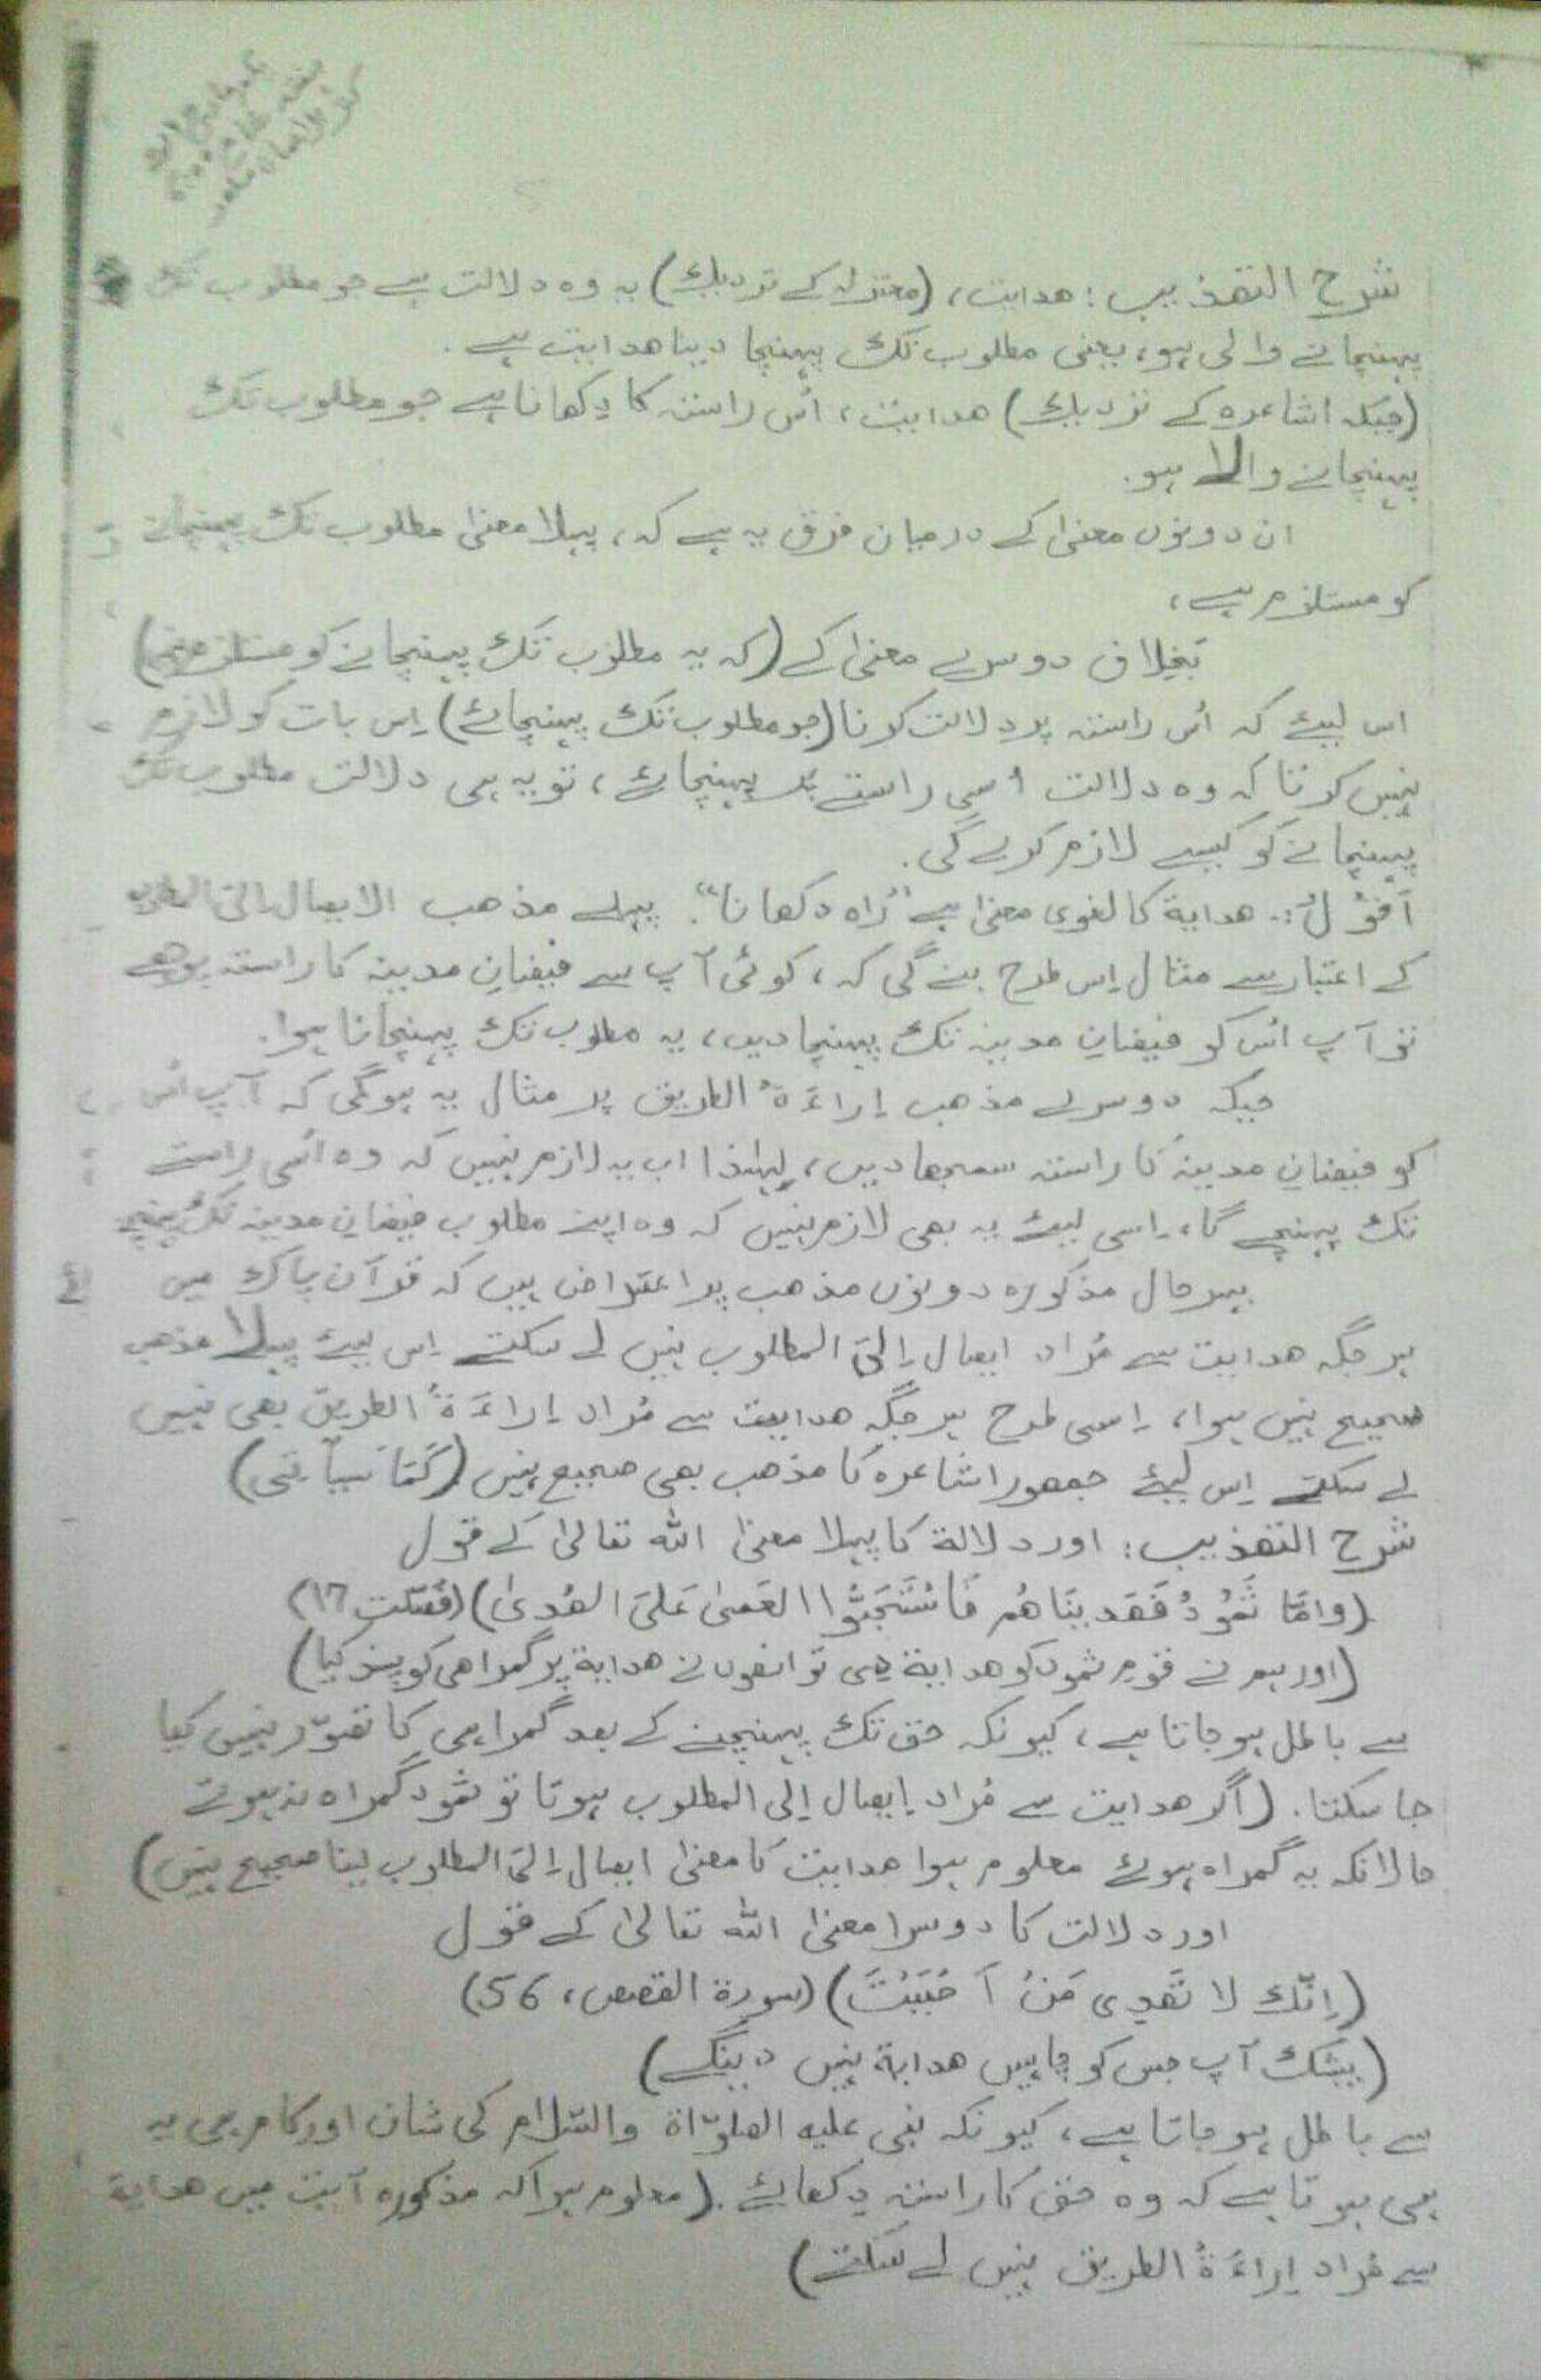 شرح التھذیب: ھدایت، (معتزلہ کے نزدیک) یہ وہ دلالت ہے جو مطلوب تک
پہنچانے والی ہو، یعنی مطلوب تک پہنچا دینا ھدایت ہے.
(جبکہ اشاعرہ کے نزدیک) ھدایت، اُس راستہ کا دِکھانا ہے جو مطلوب تک
پہنچانے والا ہو.
ان دونوں معنیٰ کے درمیان فرق یہ ہے کہ، پہلا معنیٰ مطلوب تک پہنچانے
کو مستلزم ہے،
بَخِلاف دوسرے معنیٰ کے (کہ یہ مطلوب تک پہنچانے کو مستلزم نہیں)
اس لیئے کہ اُس راستہ پر دلالت کرنا (جو مطلوب تک پہنچائے) اِس بات کو لازم
نہیں کرتا کہ وہ دلالت اُسی راستے تک پہنچائے، تو یہ ہی دلالت مطلوب تک
پہنچانے کو کیسے لازم کرے گی.
اَقُوْلُ:. ھدایة کا لغوی معنیٰ ہے "رَاہ دکھانا". پہلے مذھب الایصال اِلیَ المطلوب
کے اعتبار سے مثال اِس طرح بنے گی کہ، کوئی آپ سے فیضانِ مدینہ کا راستہ پوچھے
تو آپ اُس کو فیضانِ مدینہ تک پہنچا دیں، یہ مطلوب تک پہنچانا ہوا.
جبکہ دوسرے مذھب اِراءَةُ الطریق پر مثال یہ ہوگی کہ آپ اُس
کو فیضانِ مدینہ کا راستہ سمجھا دیں، لِہٰذا اب یہ لازم نہیں کہ وہ اُسی راستے
تک پہنچے گا، اِسی لیئے یہ بھی لازم نہیں کہ وہ اپنے مطلوب فیضانِ مدینہ تک پہنچے
بہرحال مذکورہ دونوں مذھب پر اعتراض ہیں کہ قرآن پاک میں
ہر جگہ ھدایت سے مُراد ایصال اِلیَ المطلوب نہیں لے سکتے اِس لیئے پہلا مذھب
صحیح نہیں ہوا، اِسی طرح ہر جگہ ھدایت سے مُراد اِراءَةُ الطریق بھی نہیں
لے سکتے اِس لیئے جمھور اشاعرہ کا مذھب بھی صحیح نہیں (کَمَا سَیَأتی)
شرح التھذیب: اور دلالة کا پہلا معنیٰ اللہ تعالیٰ کے قول
(وامَّا ثَمُوْدُ فَھَدیَنَاھُم فَاسْتَحَبُّوا العَمیٰ عَلیَ الھُدیٰ) (فُصّلت ١٧)
(اور ہم نے قومِ ثمود کو ھدایة دی تو انھوں نے ھدایة پر گمراھی کو پسند کیا)
سے باطل ہو جاتا ہے، کیونکہ حق تک پہنچنے کے بعد گمراہی کا تصوّر نہیں کیا
جا سکتا. (اگر ھدایت سے مُراد اِیصال اِلی المطلوب ہوتا تو ثمود گمراہ نہ ہوتے
حالانکہ یہ گمراہ ہوئے معلوم ہوا ھدایت کا معنیٰ ایصال اِلیَ المطلوب لینا صحیح نہیں)
اور دلالت کا دوسرا معنیٰ اللہ تعالیٰ کے قول
(اِنَّكَ لا تَھْدِی مَنْ اَحْبَبْتَ) (سورة القصص، 56)
(بیشک آپ جس کو چاہیں ھدایة نہیں دینگے)
سے باطل ہو جاتا ہے، کیونکہ نبی علیہ الصلوٰاة والسّلام کی شان اور کام ہی یہ
ہی ہوتا ہے کہ وہ حق کا راستہ دِکھائے. (معلوم ہوا کہ مذکورہ آیت میں ھدایة
سے مُراد اِراءَةُ الطریق نہیں لے سکتے)